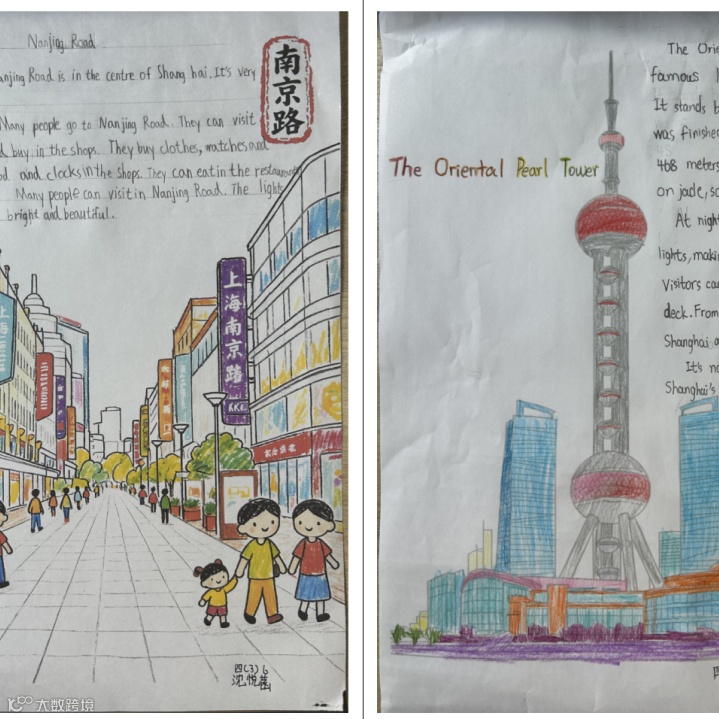 Nanjing Road
anjing Road is in the centre of Shang hai. It's very
Many people go to Nanjing Road. They can visit
d buy in the shops. They buy clothes, watches and
od and clocks in the shops. They can eat in the restaurants
Many people can visit in Nanjing Road. The lights
bright and beautiful.
南京路
上海南京路
上海
四(3) 6
沈悦
大数跨境
The Oriental Pearl Tower
The Orie
famous
It stands b
was finished
468 meters
on jade, so
At night
lights, makin
Visitors ca
deck. From
Shanghai a
It's no
Shanghai's